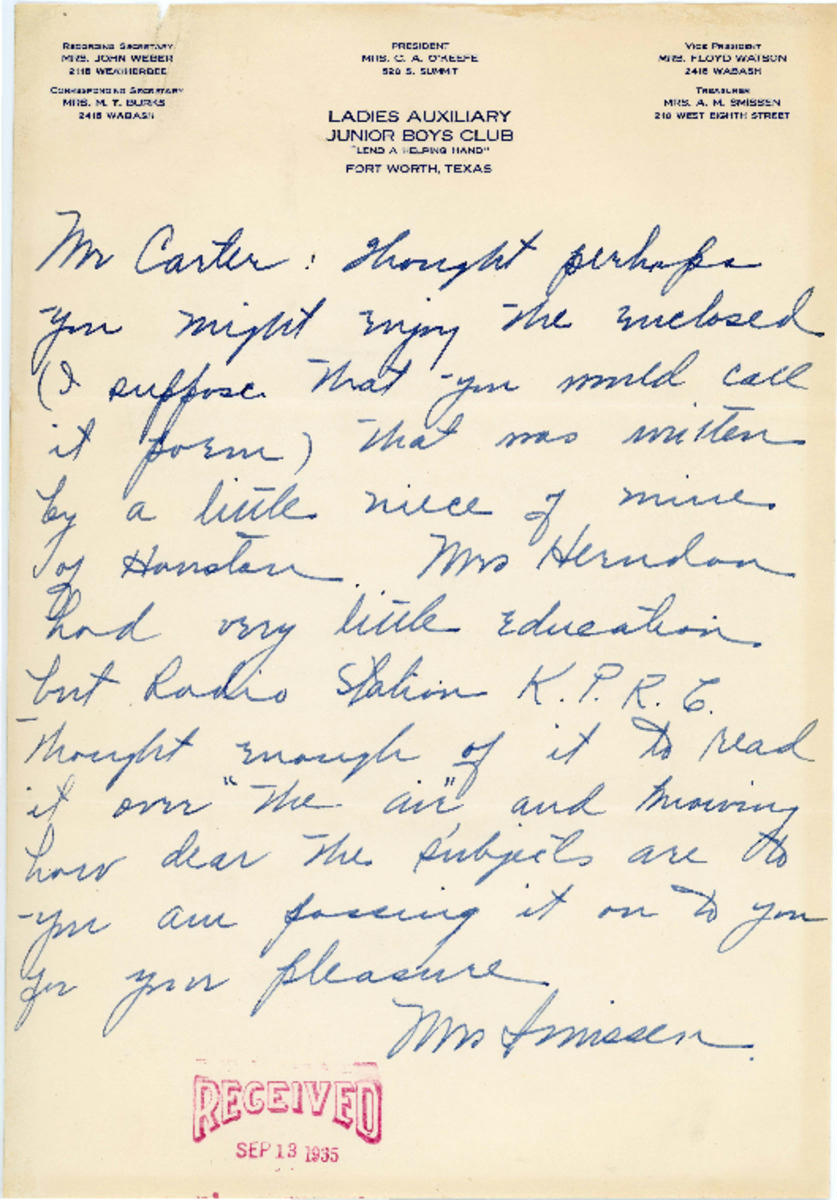 RECORDING SECRETARY
MRS. JOHN WEBER
2118 WEATHERBEE
CORRESPONDING SECRETARY
MRS. M. T. BURKS
2416 WABASH
PRESIDENT
MRS. C. A. O'KEEFE
520 S. SUMMIT
VICE PRESIDENT
MRS. FLOYD WATSON
2416 WABASH
TREASURER
MRS. A. M. SMISSEN
210 WEST EIGHTH STREET
LADIES AUXILIARY
JUNIOR BOYS CLUB
"LEND A HELPING HAND"
FORT WORTH, TEXAS
Mr Carter: Thought perhaps
you might enjoy the enclosed
(I suppose that you would call
it poem) that was written
by a little niece of mine
of Houston Mrs Herndon
had very little education
but Radio Station K.P.R.C.
thought enough of it to read
it over "the air", and knowing
how dear the subjects are to
you am passing it on to you
for your pleasure
Mrs Smissen.
RECEIVED
SEP 13 1935